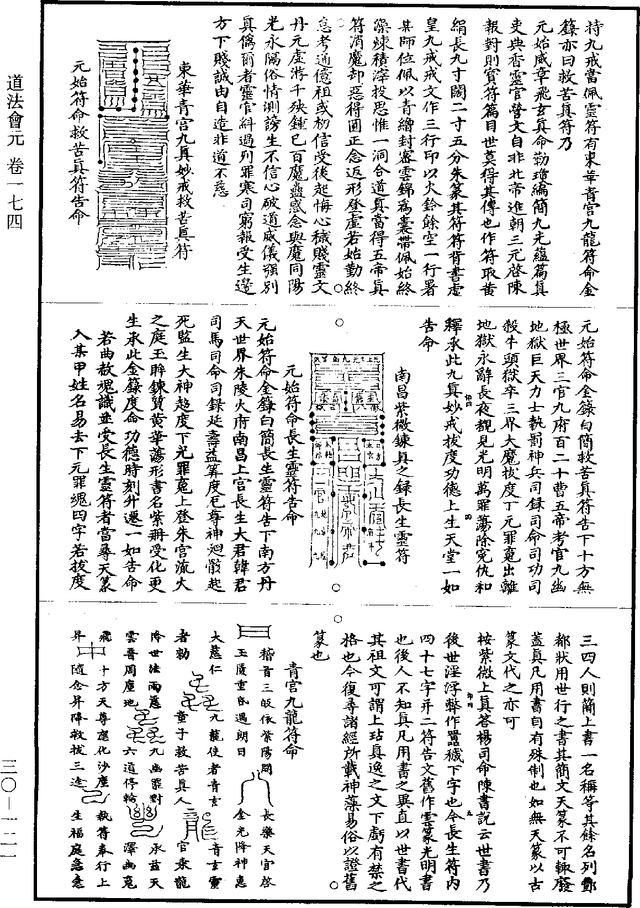 道法會元 卷一七四
持九戒當佩靈符有東華青宮九龍符命金
籙亦曰救苦真符乃
元始威章飛玄真命勒瓊編簡九光蘊篇真
吏典香靈官營文自非北帝進朝三元啓陳
報對則寶符篇目世莫得其傳也作符取黃
絹長九寸闊二寸五分朱篆其符符背書虛
皇九戒戒文作三行印以火鈴餘空一行署
某師位佩以青繒封密雲錦為囊帶佩始終
藻練積滓投思惟一洞合道真當得五帝真
符消魔却惡得固正念返形登虛若始勤終
怠考逋億祖或初信受後起悔心穢賤靈文
丹元虛游千殃鍾已百魔蠱惑念與魔同陽
光永隔俗情測謗生不信心破道威儀強別
真偽爾者靈官糾過列罪寒司窮報受生邊
方下賤誠由自造非道不慈
東華青宮九真妙戒救苦真符
元始符命救苦真符告命
元始符命金籙白簡救苦真符告下十方無
極世界三官九府百二十曹五帝考官九幽
地獄巨天力士執罰神兵司録司命司功司
殺牛頭獄卒三界大魔拔度下元罪魂出離
地獄永辭長夜覩見光明萬罪蕩除寃仇和
釋承此九真妙戒拔度功德上生天堂一如
告命
南昌紫微鍊真之籙長生靈符
元始符命長生靈符告命
元始符命金籙白簡長生靈符告下南方丹
天世界朱陵火府南昌上宮長生大君韓君
司馬司命司録延壽益筭度厄尊神迴骸起
死監生大神超度下元罪魂上登朱宮流火
之庭玉眸鍊質黃華蕩形書名紫冊受化更
生承此金籙度命功德時刻升遷一如告命
若曲赦魂識並受長生靈符者當尋天篆
入某甲姓名易去下元罪魂四字若拔度
三四人則簡上書一名稱等其餘名列酆
都狀用世行之書其簡文天篆不可輒廢
蓋真凡用書自有殊制也如無天篆以古
篆文代之亦可
按紫微上真答楊司命陳書說云世書乃
後世淫浮弊作囂穢下字也今長生符內
四十七字并二符告文舊作雲篆光明書
也後人不知真凡用書之異直以世書代
其祖文可謂上玷真逸之文下虧有禁之
格也今復尋諸經所載神藻易俗以證舊
篆也
青宮九龍符命
稽首三皈依紫陽開
長樂天宮啓
玉陵重昏遇朗日
金光降神惠
大慈仁
九龍使者青玄
青玄靈
者勅
童子救苦真人
官乘龍
降世法雨蔭
九幽罪對
承茲天
雲吾周塵地
六道停輪
澤幽寃
飛
十方天尊應化沙塵
執符奉行上
昇
隨念昇降救拔三途
生福庭急急
三〇—一二一